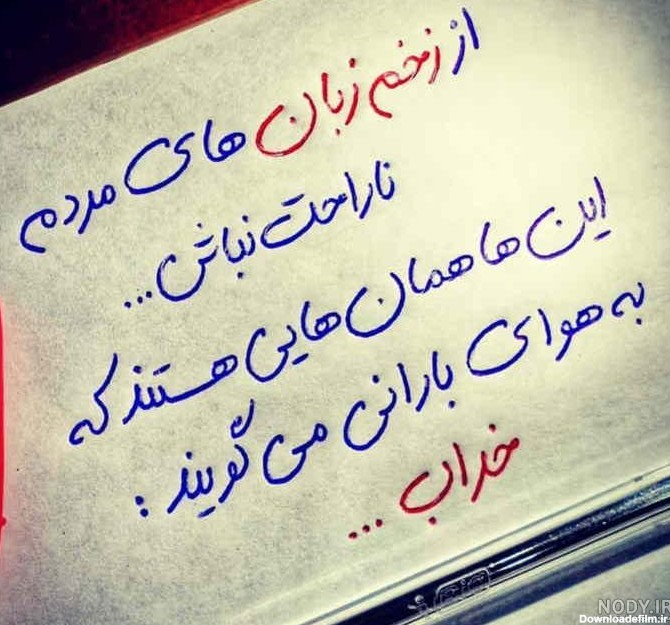 از زخم زبان های مردم
ناراحت نباش...
این ها همان هایی هستند که
به هوای بارانی می گویند :
خراب ...
NODY.IR
Downloadefilm.ir